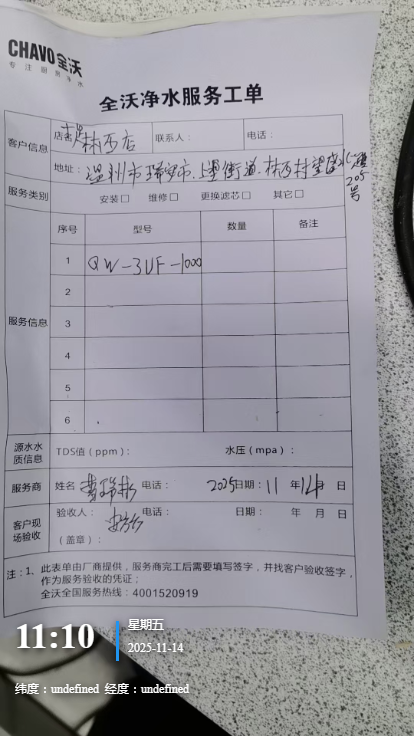 CHAVO全沃
专注厨房净水
全沃净水服务工单
客户信息
店名 林西店
联系人：
电话：
地址：温州市瑞安市上望街道林西村望
205号
服务类别
安装□ 维修□ 更换滤芯□ 其它□
服务信息
序号 型号 数量 备注
1 QW-3UF-1000
2
3
4
5
6
源水水质信息
TDS值（ppm）： 水压（mpa）：
服务商
姓名 电话： 2025日期：11 年 14 日
客户现场验收
验收人： 电话： 日期： 年 月 日
（盖章）：
注：1、此表单由厂商提供，服务商完工后需要填写签字，并找客户验收签字，
作为服务验收的凭证；
全沃全国服务热线：4001520919
11:10
星期五
2025-11-14
纬度：undefined 经度：undefined